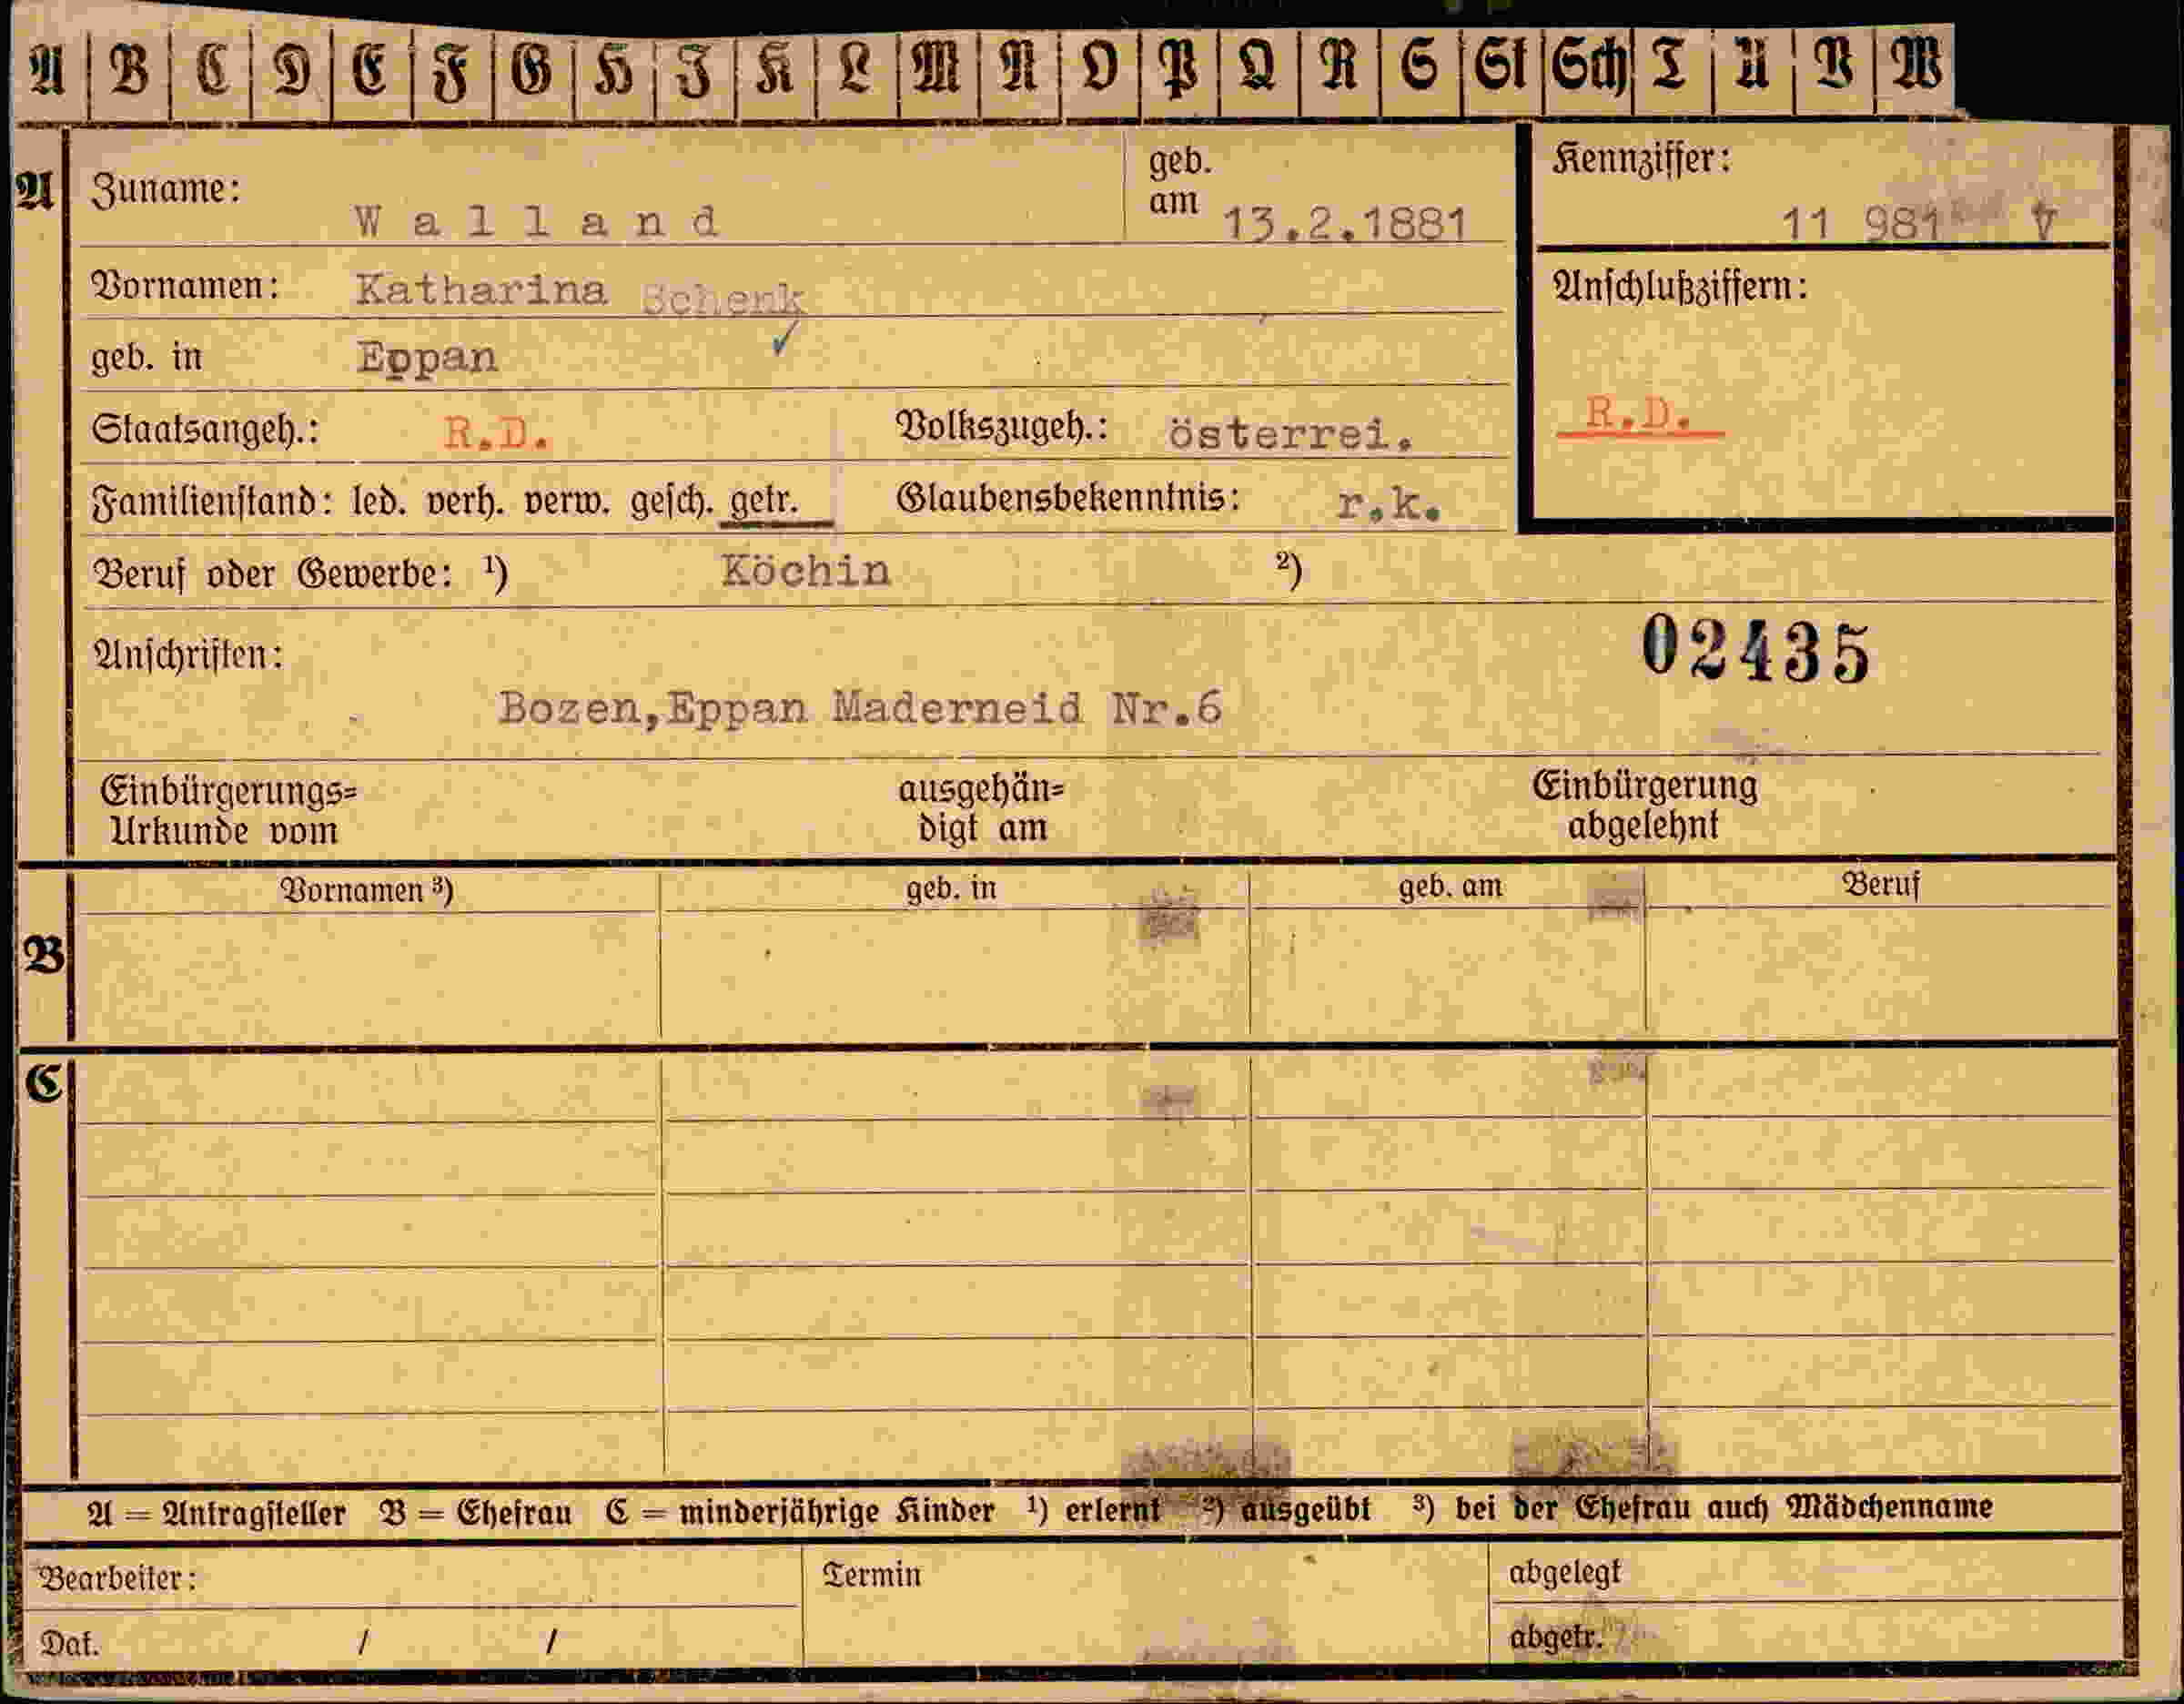 A B C D E F G H I K L M N O P Q R S St Sch T U V W
A Zuname: Walland geb. am 13.2.1881 Kennziffer: 11 981
Vornamen: Katharina Schenk Anschlußziffern:
geb. in Eppan
Staatsangeh.: R.D. Volkszugeh.: österrei. R.D.
Familienstand: led. verh. verw. gesch. getr. Glaubensbekenntnis: r.k.
Beruf oder Gewerbe: ¹) Köchin ²)
Anschriften: 02435
Bozen,Eppan Maderneid Nr.6
Einbürgerungs= ausgehän= Einbürgerung
Urkunde vom digt am abgelehnt
Vornamen ³) geb. in geb. am Beruf
B
C
A = Antragsteller B = Ehefrau C = minderjährige Kinder ¹) erlernt ²) ausgeübt ³) bei der Ehefrau auch Mädchenname
Bearbeiter: Termin abgelegt
Dat. / / abgetr.